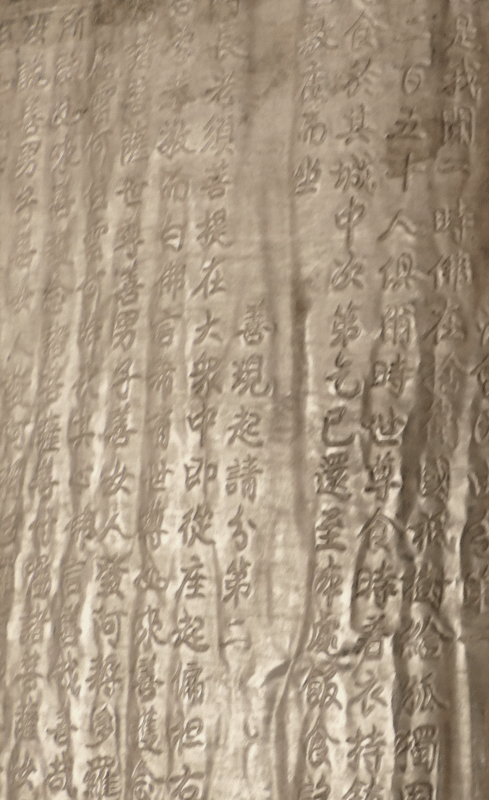 會因由分第
是我聞一時佛在舍衛國祇樹給孤獨園
百五十人俱爾時世尊食時著衣持鉢
食於其城中次第乞已還至本處飯食訖
敷座而坐
善現起請分第二
長老須菩提在大衆中即從座起偏袒右
恭敬而白佛言希有世尊如來善護念
諸菩薩世尊善男子善女人發阿耨多羅
應云何住云何降伏其心佛言善哉善哉
所說如來善護念諸菩薩善付囑諸菩薩汝
說善男子善女人發阿耨